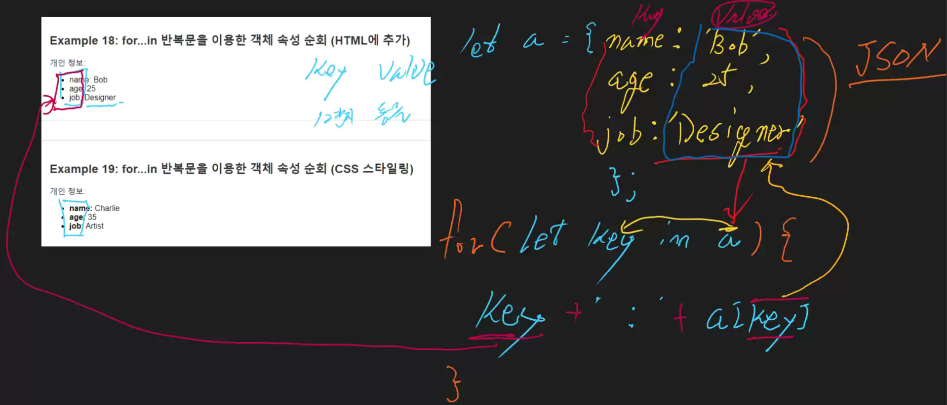 Example 18: for...in 반복문을 이용한 객체 속성 순회 (HTML에 추가)
개인 정보:
name: Bob
age: 25
job: Designer
Key Value
Example 19: for...in 반복문을 이용한 객체 속성 순회 (CSS 스타일링)
개인 정보:
name: Charlie
age: 35
job: Artist
Key Values
let a = { name : 'Bob',
age : 25,
job : 'Designer'
};
JSON
for ( let key in a ) {
key + ' : ' + a[key]
}